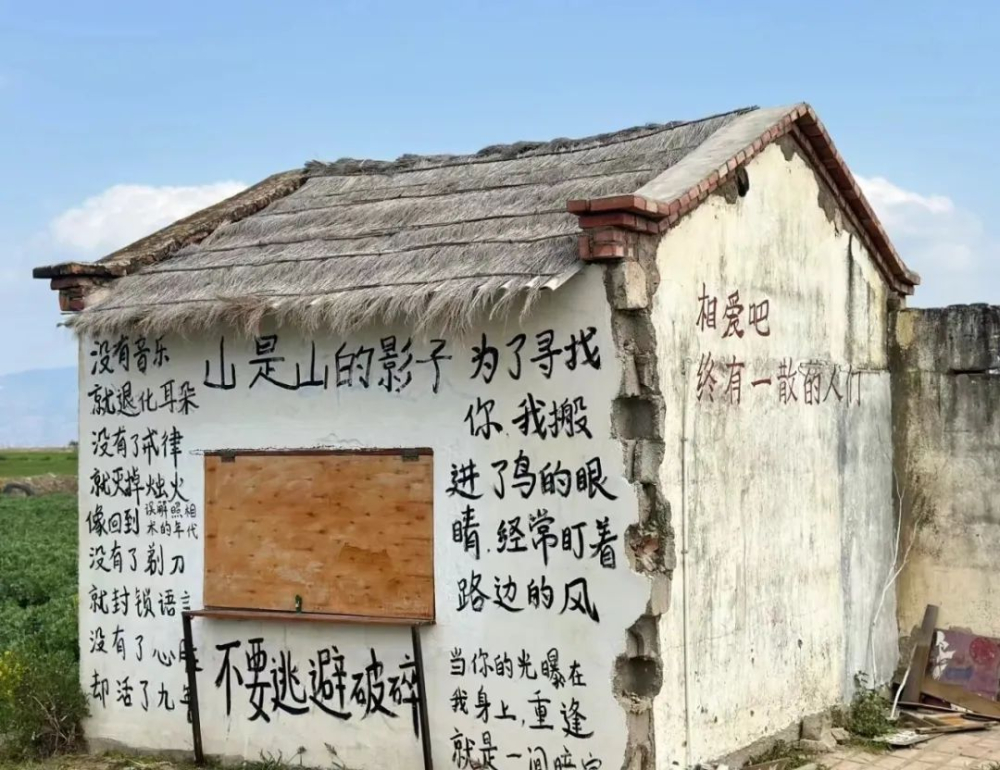 没有音乐
就退化耳朵
没有了戒律
就灭掉烛火
像回到误解照相
术的年代
没有了剃刀
就封锁语言
没有了心
却活了九年
山是山的影子
不要逃避破碎
为了寻找
你,我搬
进了鸟的眼
睛,经常盯着
路边的风
当你的光曝在
我身上,重逢
就是一间暗室
相爱吧
终有一散的人们